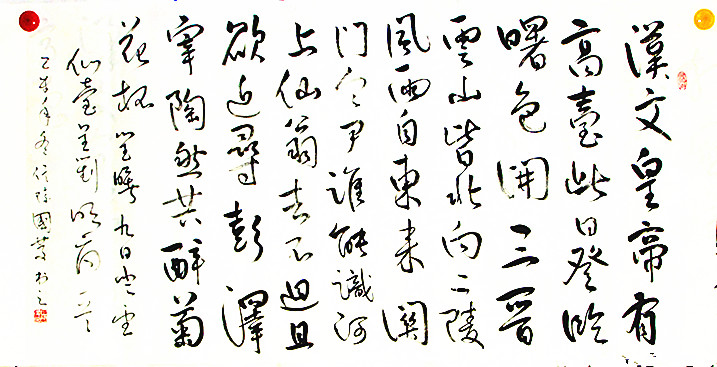 漢文皇帝有
高臺此日登臨
曙色開三晉
雲山皆北向二陵
風雨自東来關
門令尹誰能識河
上仙翁去不迴且
欲近尋彭澤
宰陶然共醉菊
花杯 崔曙九日登望
仙臺呈劉明府
乙未年冬 國 書之